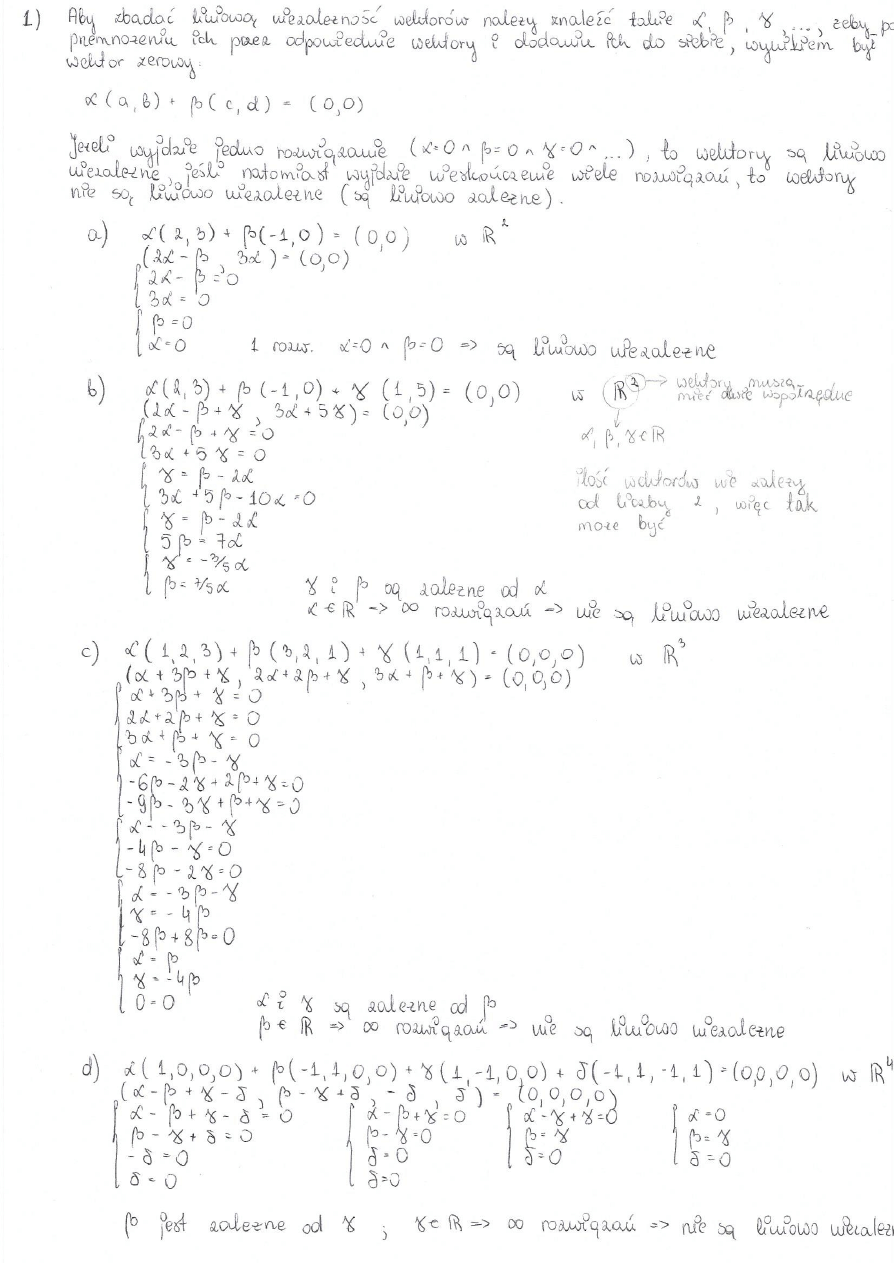 1) Aby zbadać liniową niezależność wektorów należy znaleźć takie α, β, γ, ..., żeby po
przemnożeniu ich przez odpowiednie wektory i dodaniu ich do siebie, wynikiem był
wektor zerowy.
α(a,b) + β(c,d) = (0,0)
Jeżeli wyjdzie jedno rozwiązanie (α=0 ∧ β=0 ∧ γ=0 ∧ ...), to wektory są liniowo
niezależne, jeśli natomiast wyjdzie nieskończenie wiele rozwiązań, to wektory
nie są liniowo niezależne (są liniowo zależne).
a) α(2,3) + β(-1,0) = (0,0) w ℝ²
(2α-β, 3α) = (0,0)
2α-β=0
3α=0
β=0
α=0 1 rozw. α=0 ∧ β=0 => są liniowo niezależne
b) α(2,3) + β(-1,0) + γ(1,5) = (0,0) w ℝ² → wektory muszą mieć dwie współrzędne
(2α-β+γ, 3α+5γ) = (0,0)
2α-β+γ=0 α, β, γ ∈ ℝ
3α+5γ=0
γ = β-2α ilość wektorów nie zależy
3α+5β-10α=0 od liczby 2, więc tak
γ = β-2α może być
5β=7α
γ=-3/5α
β=7/5α γ i β są zależne od α
α ∈ ℝ => ∞ rozwiązań => nie są liniowo niezależne
c) α(1,2,3) + β(3,2,1) + γ(1,1,1) = (0,0,0) w ℝ³
(α+3β+γ, 2α+2β+γ, 3α+β+γ) = (0,0,0)
α+3β+γ=0
2α+2β+γ=0
3α+β+γ=0
α=-3β-γ
-6β-2γ+2β+γ=0
-9β-3γ+β+γ=0
α=-3β-γ
-4β-γ=0
-8β-2γ=0
α=-3β-γ
γ=-4β
-8β+8β=0
α=β
γ=-4β
0=0 α i γ są zależne od β
β ∈ ℝ => ∞ rozwiązań => nie są liniowo niezależne
d) α(1,0,0,0) + β(-1,1,0,0) + γ(1,-1,0,0) + δ(-1,1,-1,1) = (0,0,0,0) w ℝ⁴
(α-β+γ-δ, β-γ+δ, -δ, δ) = (0,0,0,0)
α-β+γ-δ=0 α-β+γ=0 α-γ+γ=0 α=0
β-γ+δ=0 β-γ=0 β=γ β=γ
-δ=0 δ=0 δ=0 δ=0
δ=0 δ=0
β jest zależne od γ ; γ ∈ ℝ => ∞ rozwiązań => nie są liniowo niezależn